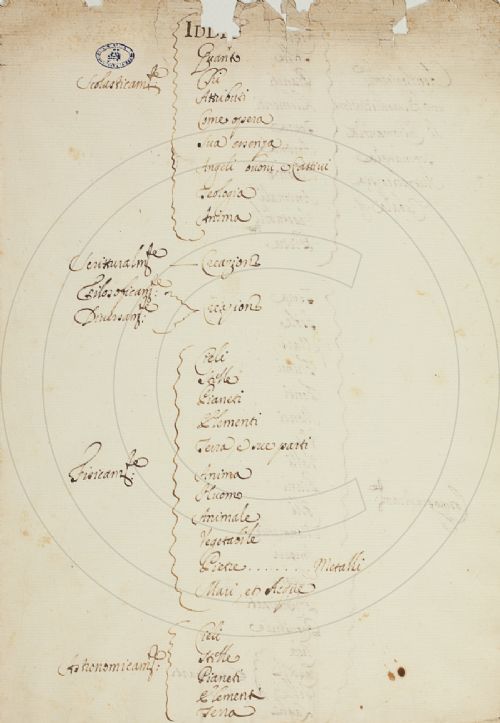 IDD
Quanto
Scolasticam.te
Chi
Attributi
Come opera
Sua essenza
Angeli buoni, e Cattivi
Teologia
Anima
Scritturalm.te Creazione
Filosoficam.te
Diversam.te Creazione
Cieli
Stelle
Pianeti
Elementi
Terra e sue parti
Fisicam.te
Anima
Huomo
Animale
Vegetabile
Pietre . . . . . . . Metalli
Mari, et Acque
Cieli
Stelle
Astronomicam.te
Pianeti
Elementi
Terra